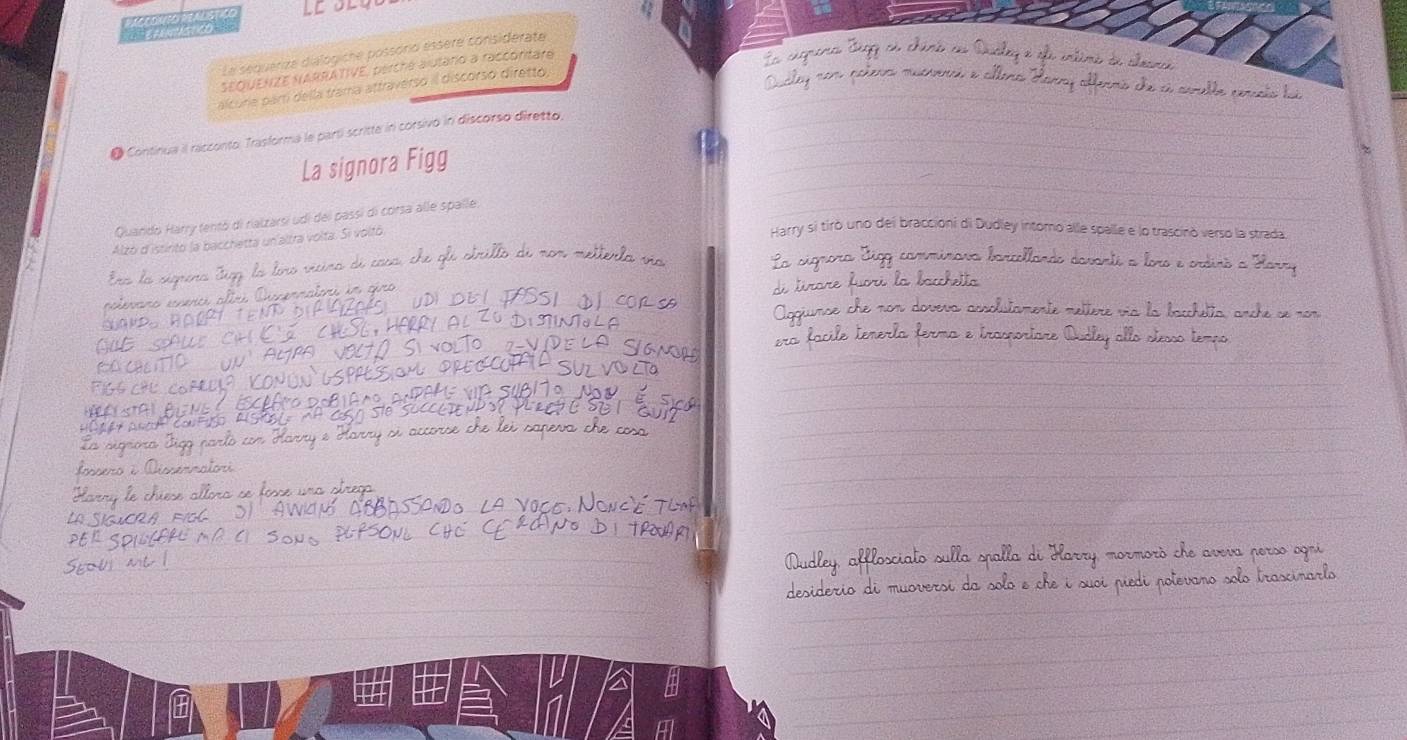 RACCONTO REALISTICO
E FANTASTICO
LE
Le sequenze dialogiche possono essere considerate
SEQUENZE NARRATIVE, perché aiutano a raccontare
alcune parti della trama attraverso il discorso diretto.
Continua il racconto. Trasforma le parti scritte in corsivo in discorso diretto.
La signora Figg
Quando Harry tentò di rialzarsi udì dei passi di corsa alle spalle.
Alzò d'istinto la bacchetta un'altra volta. Si voltò.
Era la signora Figg la loro vicina di casa, che gli strillò di non metterla via
potevano esserci altri Dissennatori in giro
QUANDO HARRY TENTO DI RIALZARSI UDI DEI PASSI DI CORSA
ALLE SPALLE CHI C'È CHI SEI, HARRY ALZO DISTINTOLA
BACHETTA UN' ALTRA VOLTA SI VOLTO VIDE LA SIGNORA
FIGG CHE CORREVA CON UN' ESPRESSIONE PREOCCUPATA SUL VOLTO
HARRY STAI BENE? ESCLAMO DOBIAMO ANDARE VIA SUBITO NON È SICURO QUI
HARRY ANCORA CONFUSO RISPOSE MA COSO STO SUCCEDENDO? PERCHE SEI QUI?
La signora Figg parlò con Harry e Harry si accorse che lei sapeva che cosa
fossero i Dissennatori
Harry le chiese allora se fosse una strega
LA SIGNORA FIGG SI AVVICINÒ ABBASSANDO LA VOCE. NON C'È TEMP
PER SPIEGARE MA CI SONO PERSONE CHE CERCANO DI TROVARTI
SEGUI ME!
E FANTASTICO
La signora Figg si chinò su Dudley e gli intimò di alzarsi
Dudley non poteva muoversi e allora Harry affermò che ci avrebbe pensato lui
Harry si tirò uno dei braccioni di Dudley intorno alle spalle e lo trascinò verso la strada.
La signora Figg camminava barcollando davanti a loro e ordinò a Harry
di tirare fuori la bacchetta
Aggiunse che non doveva assolutamente mettere via la bacchetta, anche se non
era facile tenerla ferma e trasportare Dudley allo stesso tempo
Dudley, afflosciato sulla spalla di Harry mormorò che aveva perso ogni
desiderio di muoversi da solo e che i suoi piedi potevano solo trascinarlo